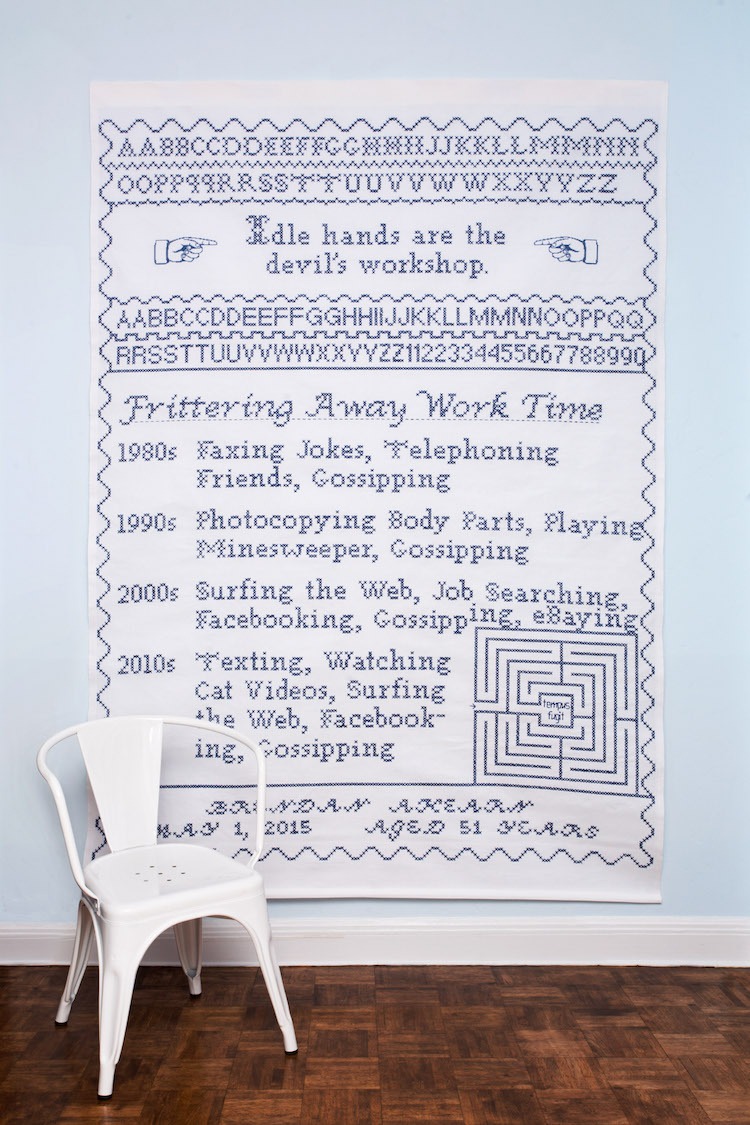 AABBCCDDEEFFGGHHIIJJKKLLMMNN
OOPPQQRRSSTTUUVVWWXXYYZZ
Idle hands are the
devil's workshop.
AABBCCDDEEFFGGHHIIJJKKLLMMNNOOPPQQ
RRSSTTUUVVWWXXYYZZ1122334455667788990
Frittering Away Work Time
1980s Faxing Jokes, Telephoning
Friends, Gossipping
1990s Photocopying Body Parts, Playing
Minesweeper, Gossipping
2000s Surfing the Web, Job Searching,
Facebooking, Gossipping, eBaying
2010s Texting, Watching
Cat Videos, Surfing
the Web, Facebook-
ing, Gossipping
tempus
fugit
BRENDAN AHEARN
MAY 1, 2015 AGED 51 YEARS